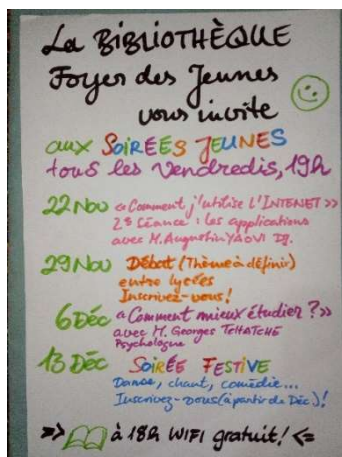 La BIBLIOTHÈQUE
Foyer des Jeunes
vous invite
aux SOIRÉES JEUNES
tous les Vendredis, 19h
22 Nov « Comment j'utilise L'INTENET »
2è Séance : les applications
avec M. Augustin YAOVI Dg.
29 Nov Débat (Thème à définir)
entre lycées
Inscrivez-vous !
6 Déc « Comment mieux étudier ? »
avec M. Georges TCHATCHE
Psychologue
13 Déc SOIRÉE FESTIVE
Danse, chant, comédie...
Inscrivez-vous (à partir de Déc) !
à 18h WIFI gratuit !